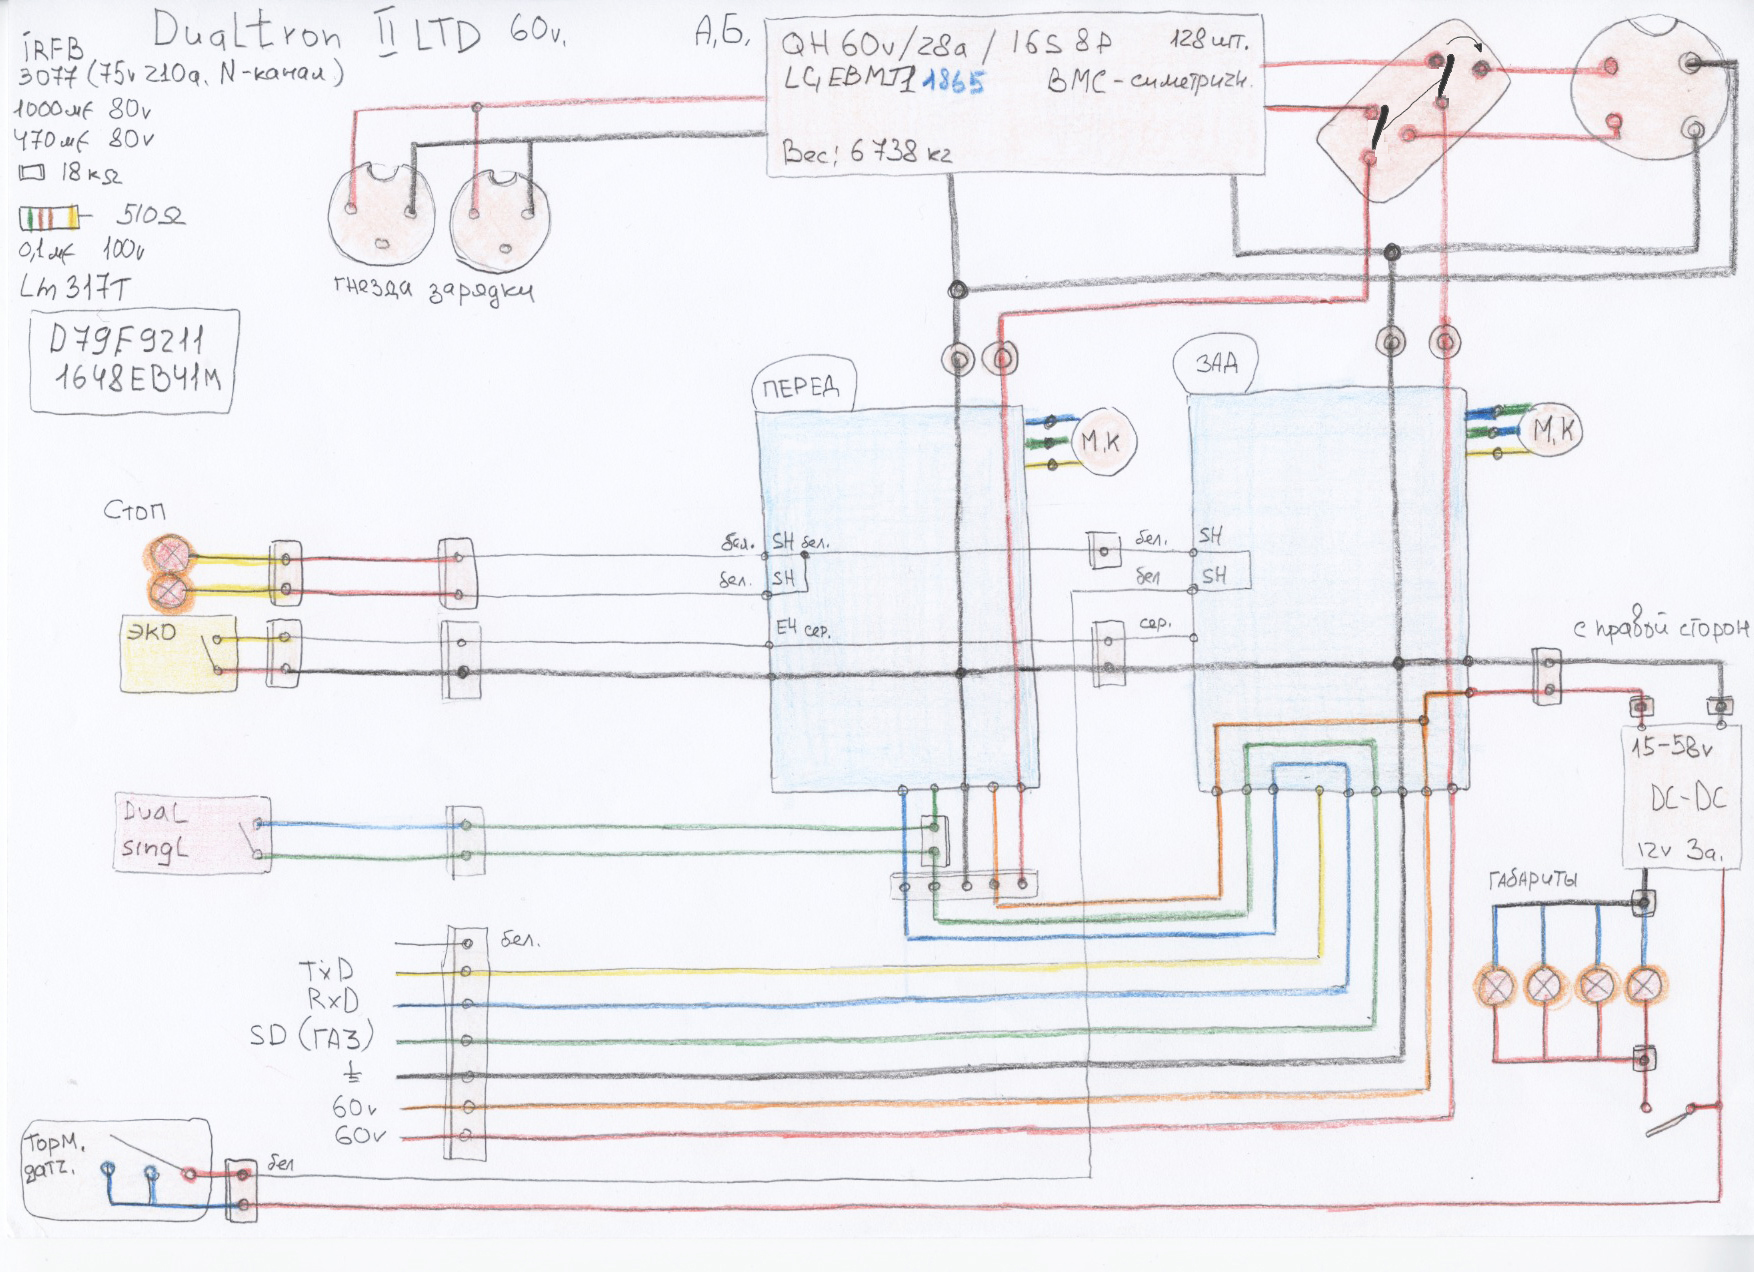 Dualtron II LTD 60v.
iRFB
3077 (75v 210a. N-канал)
1000мF 80v
470мF 80v
18кΩ
510Ω
0,1мF 100v
Lm317T
D79F9211
1648EB41M
А,Б,
QH 60v/28a / 16S 8P 128шт.
1865 ВМС-симетричн.
Вес: 6738кг
гнезда зарядки
ПЕРЕД
ЗАД
М,К
М,К
Стоп
бел. SH бел.
бел. SH
бел. SH
бел SH
ЭКО
Е4 сер.
сер.
с правой сторон
15-58v
DC-DC
12v 3а.
Dual
Singl
ГАБАРИТЫ
бел.
TxD
RxD
SD (ГАЗ)
60v
60v
Торм.
датч.
бел